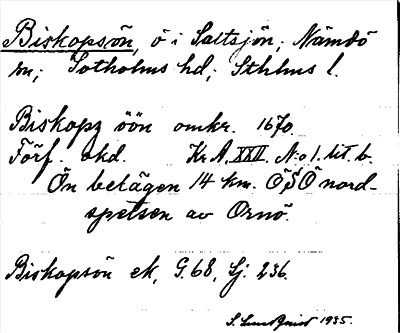 Biskopsön, ö i Saltsjön; Nämdö
sn; Sotholms hd; Sthlms l.
Biskopz öön omkr. 1670.
Förf. okd. Kr A. XXII. N:o 1. lit. b.
Ön belägen 14 km. ÖSÖ nord-
spetsen av Ornö.
Biskopsön ek, G. 68, Lj. 236.
S. Lundqvist 1935.